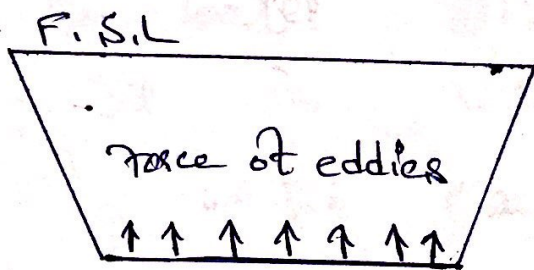 F.S.L
Force of eddies